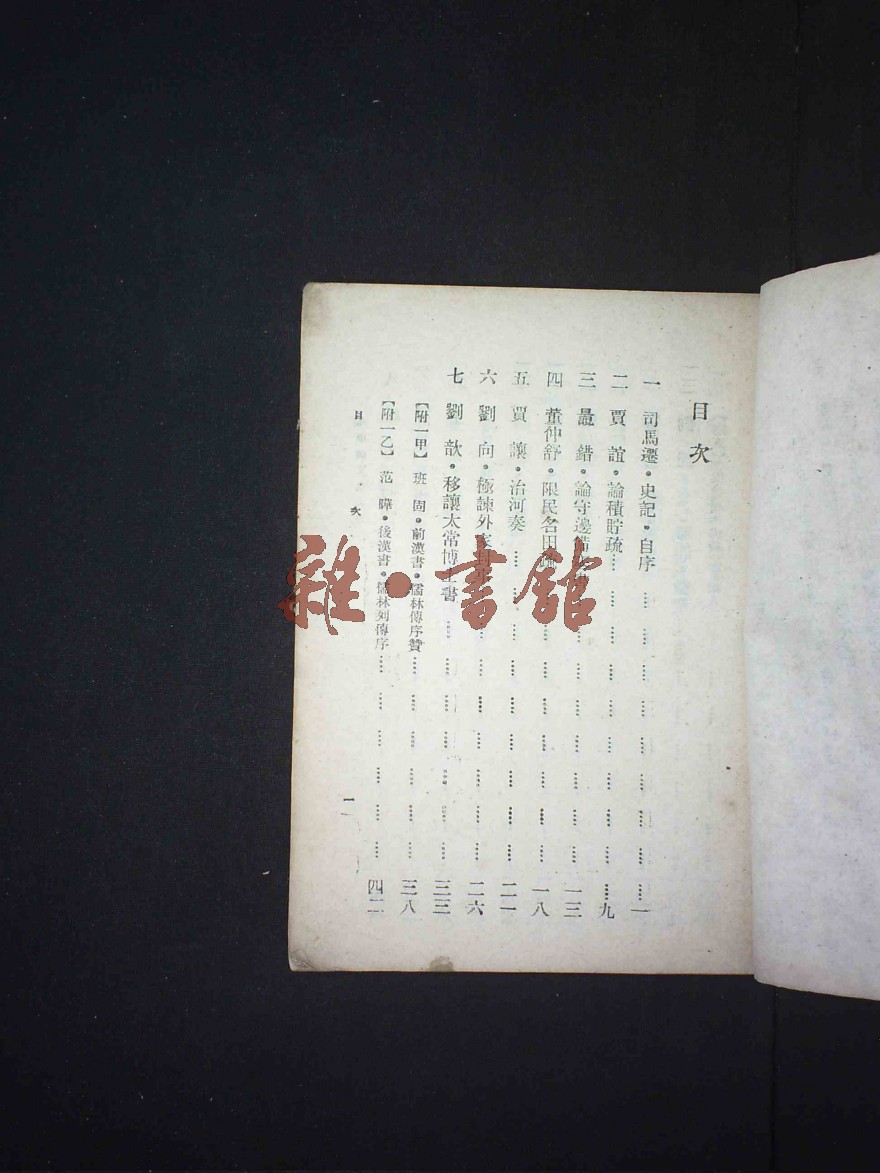 目次
一 司馬遷・史記・自序 一
二 賈誼・論積貯疏 九
三 鼂錯・論守邊備 一三
四 董仲舒・限民名田疏 一八
五 賈讓・治河奏 二一
六 劉向・極諫外家封事 二六
七 劉歆・移讓太常博士書 三三
【附一甲】 班固・前漢書・儒林傳序贊 三八
【附一乙】 范曄・後漢書・儒林列傳序 四二
目次 一
雜・書館